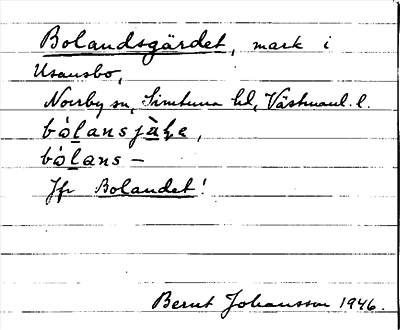 Bolandsgärdet, mark i
Usansbo,
Norrby sn, Simtuna hd, Västmanl. l.
bólans–
Jfr Bolandet!
Bernt Johansson 1946.